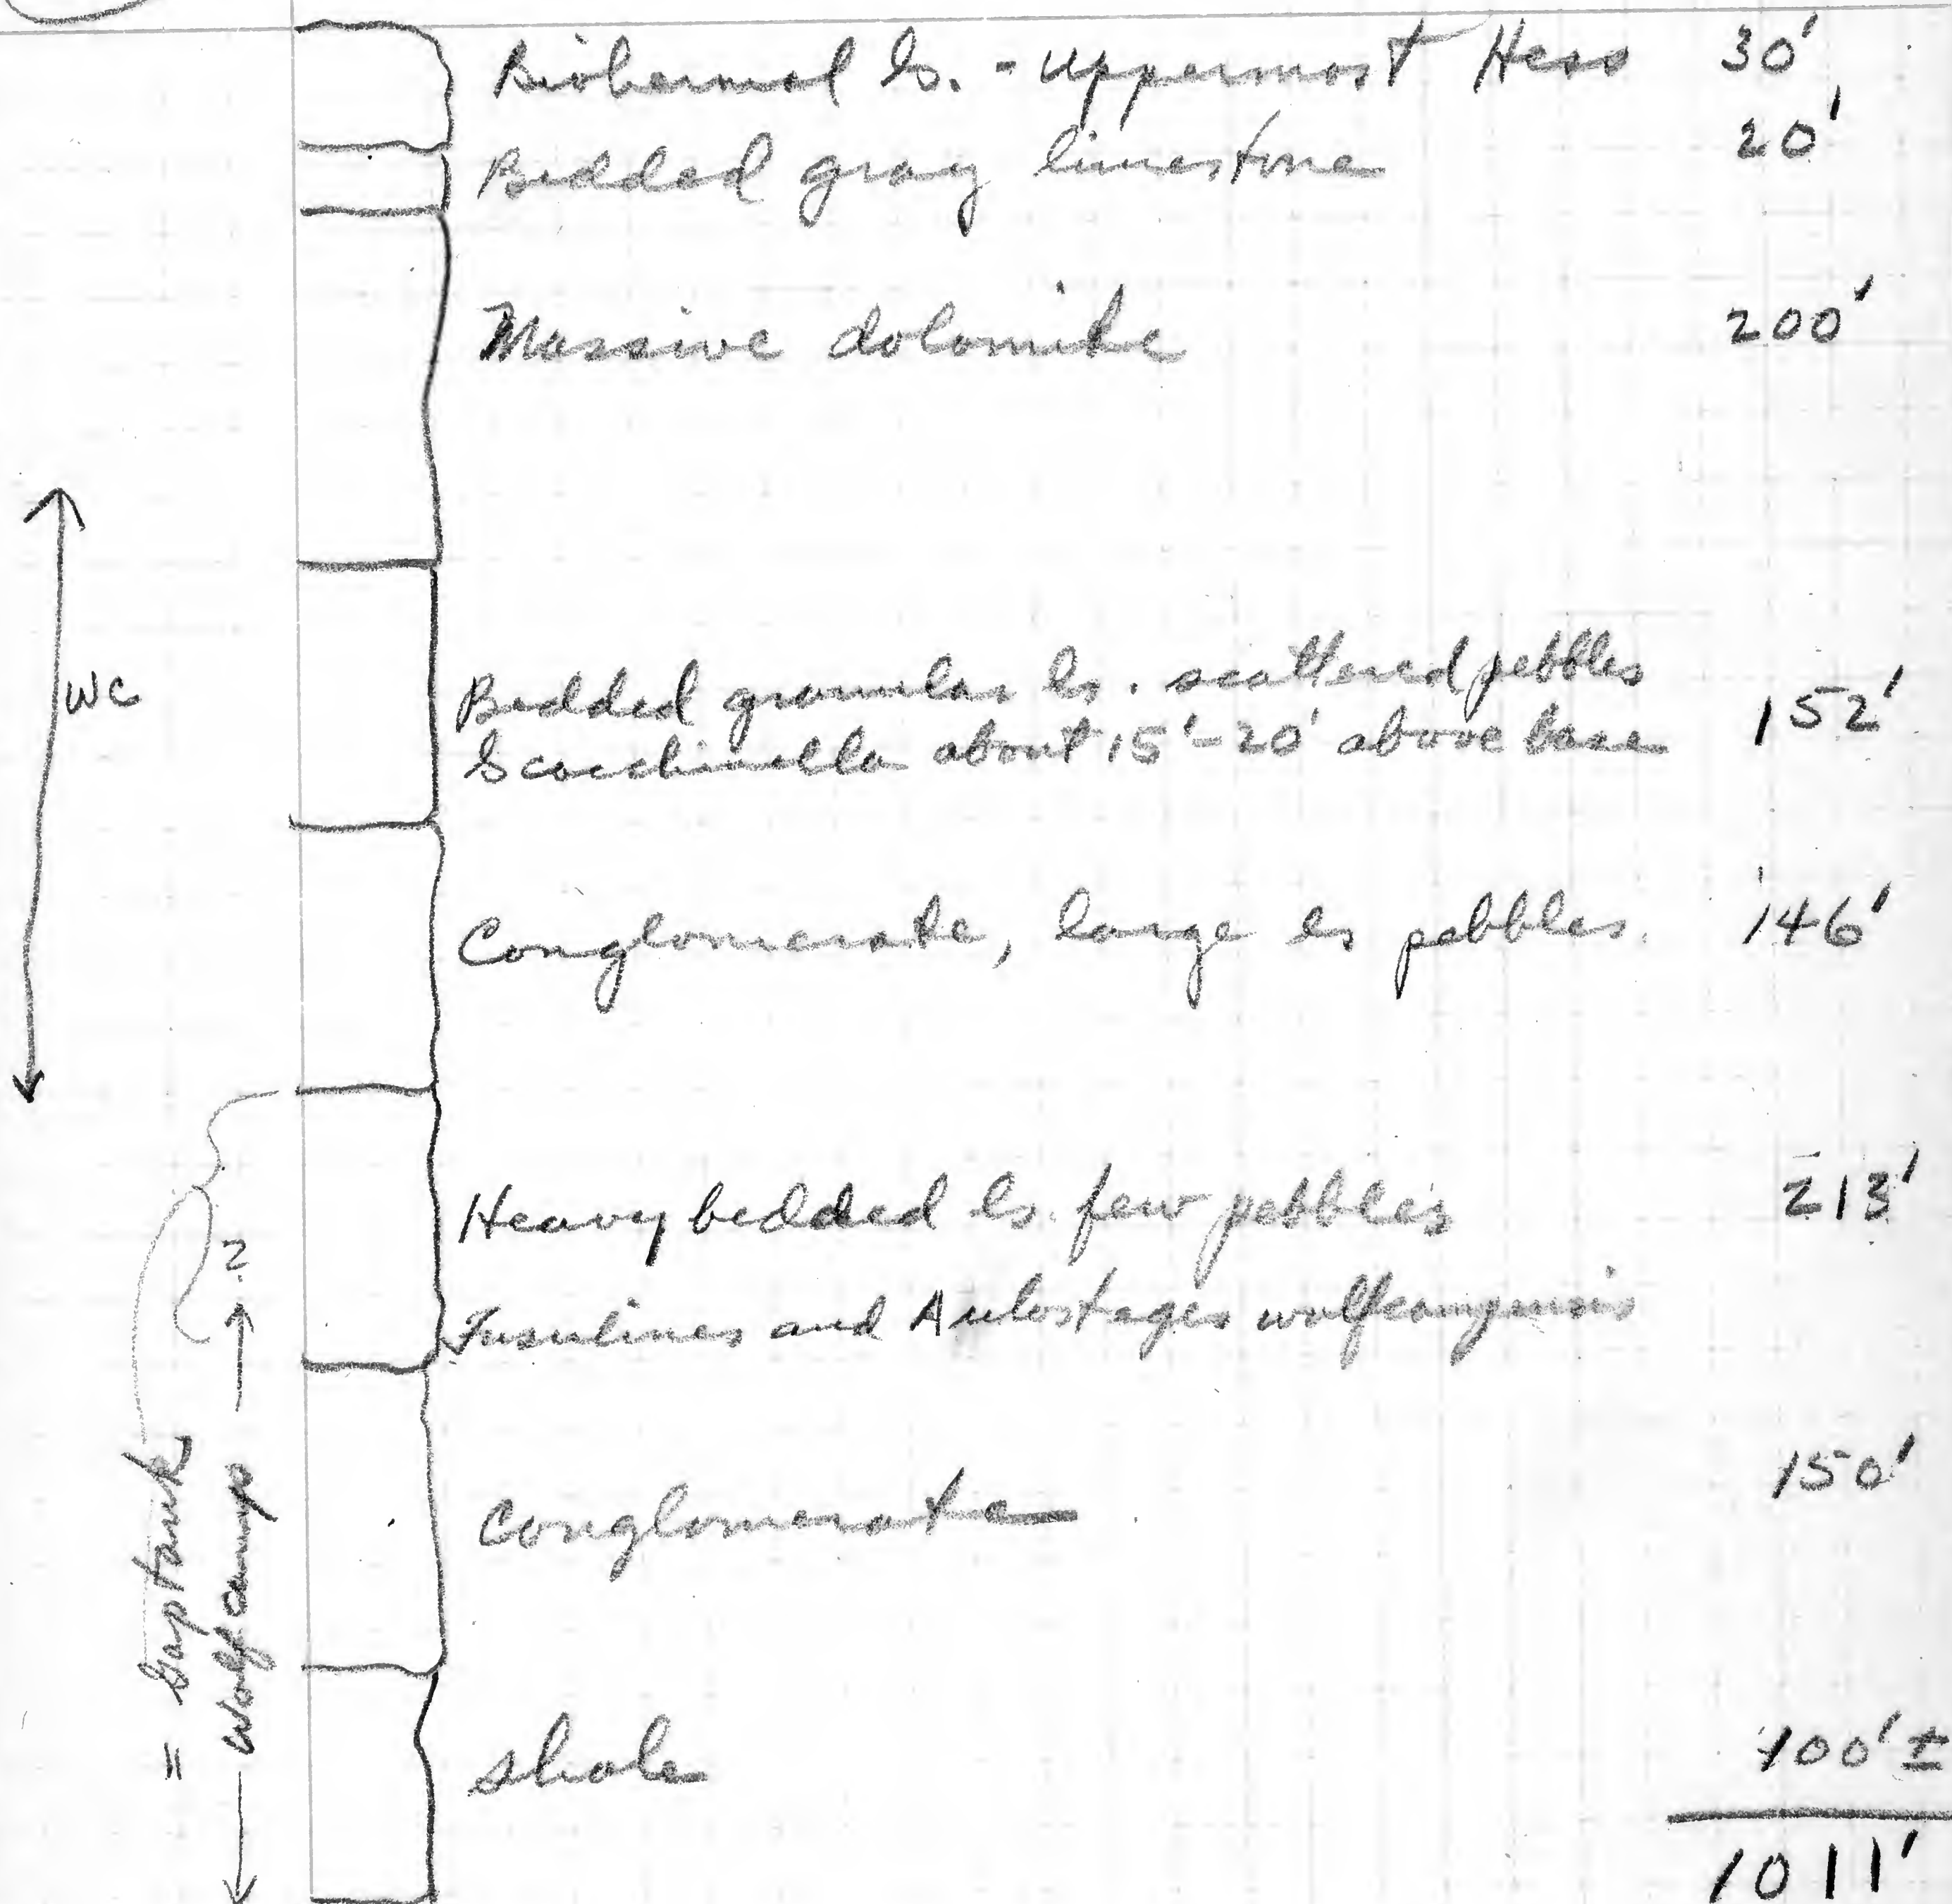 Biohermal ls. - Uppermost Hess 30'
Bedded gray limestone 20'
Massive dolomite 200'
WC
Bedded granular ls. scattered pebbles
Scacchinella about 15'-20' above base 152'
Conglomerate, large ls pebbles. 146'
Heavy bedded ls. few pebbles 213'
Fusulines and Aulosteges wolfcampensis
?
Conglomerate 150'
= Gaptank
Wolfcamp
shale 100' ±
1011'